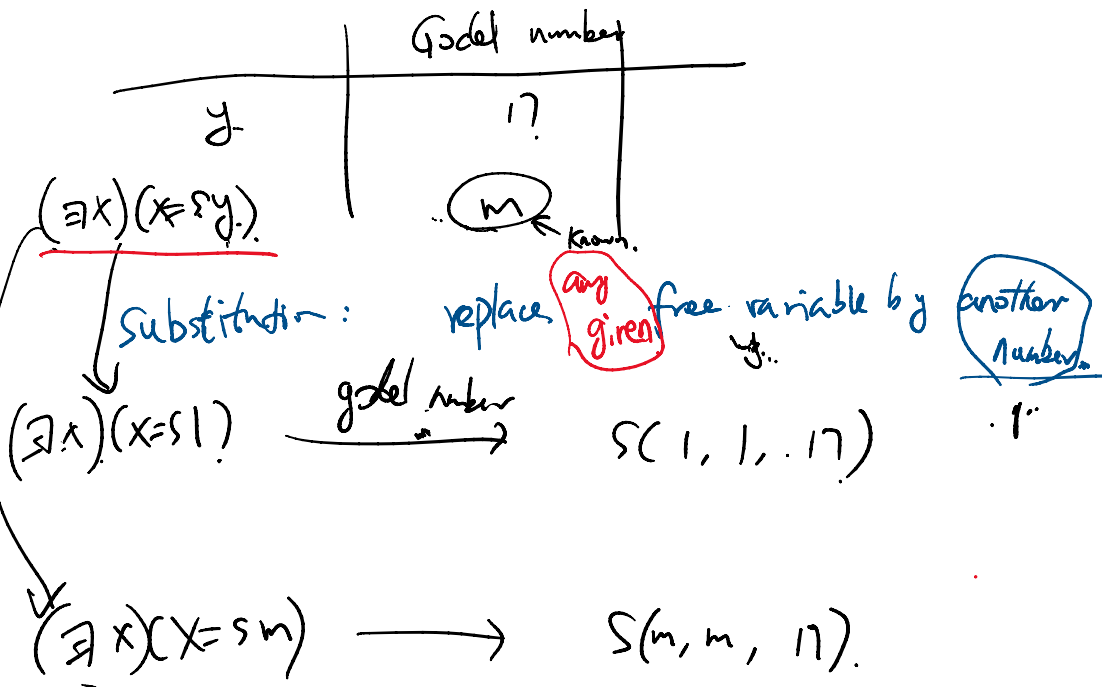 Godel number
y 17
(∃x)(x=sy) m
known.
any
substitution: replace given free variable by another
y... number...
(∃x)(x=s1) godel number S(1, 1, 17) 1..
(∃x)(x=sm) S(m, m, 17).